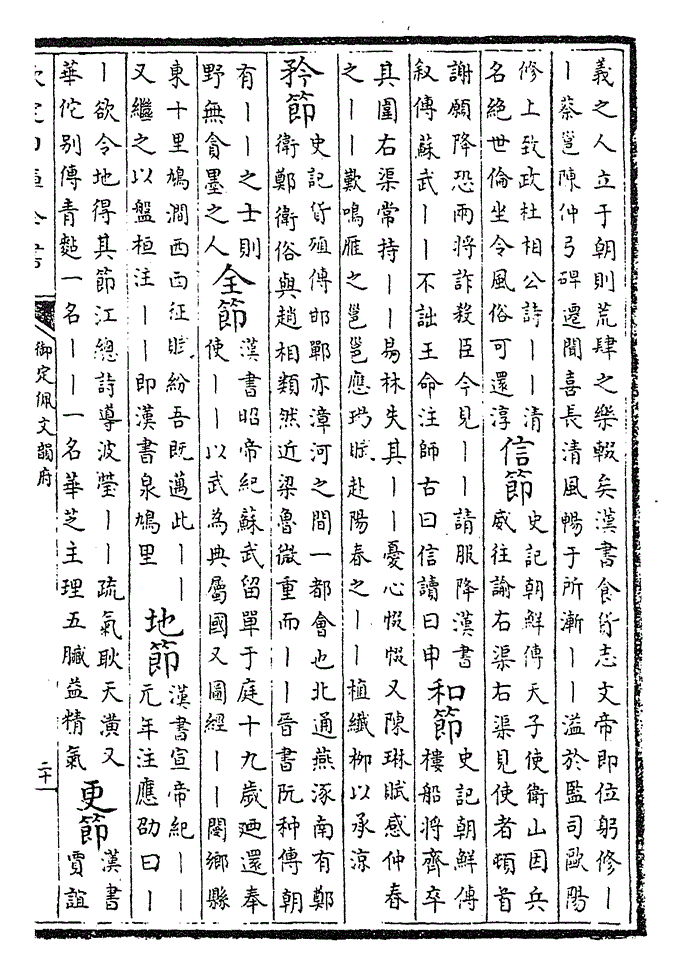 義之人立于朝則荒肆之樂輟矣漢書食貨志文帝即位躬修丨
丨蔡邕陳仲弓碑遷聞喜長清風暢于所漸丨丨溢於監司歐陽
修上致政杜相公詩丨丨清
名絕世倫坐令風俗可還淳
信節
史記朝鮮傳天子使衛山因兵
威往諭右渠右渠見使者頓首
謝願降恐兩將詐殺臣今見丨丨請服降漢書
叙傳蘇武丨丨不詘王命注師古曰信讀曰申
和節
史記朝鮮傳
樓船將齊卒
其圍右渠常持丨丨易林失其丨丨憂心惙惙又陳琳賦感仲春
之丨丨歎鳴雁之邕邕應瑒賦赴陽春之丨丨植纖柳以承涼
矜節
史記貨殖傳邯鄲亦漳河之間一都會也北通燕涿南有鄭
衛鄭衛俗與趙相類然近梁魯微重而丨丨晉書阮种傳朝
有丨丨之士則
野無貪墨之人
全節
漢書昭帝紀蘇武留單于庭十九歲廼還奉
使丨丨以武為典屬國又圖經丨丨閿鄉縣
東十里鳩澗西西征賦紛吾既邁此丨丨
又繼之以盤桓注丨丨即漢書泉鳩里
地節
漢書宣帝紀丨丨
元年注應劭曰丨
丨欲令地得其節江總詩導波瑩丨丨疏氣耿天潢又
華佗別傳青黏一名丨丨一名華芝主理五臟益精氣
更節
漢書
賈誼
欽定四庫全書
御定佩文韻府
二十一